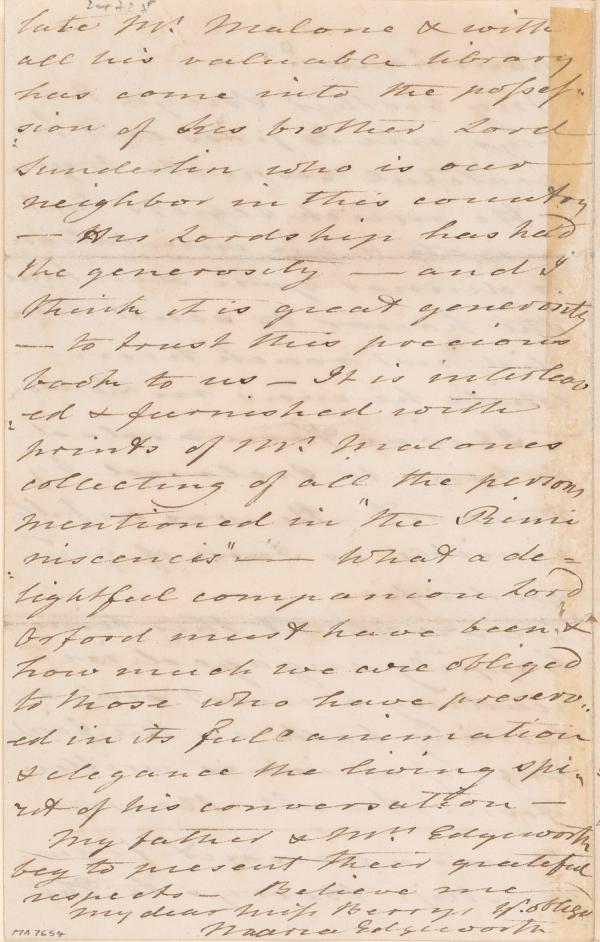 late Mr. Malone & with
all his valuable library
has come into the possess-
sion of his brother Lord
Sunderlin who is our
neighbor in this country
— His Lordship has had
the generosity — and I
think it is great generosity
— to trust this precious
book to us — It is interleav
-ed & furnished with
prints of Mr. Malones
collecting of all the persons
mentioned in "the Rimi
niscences" — What a de-
lightful companion Lord
Orford must have been &
how much we are obliged
to those who have preserv-
ed in its full animation
& elegance the living spi-
rit of his conversation —
My father & Mrs. Edgeworth
beg to present their grateful
respects — Believe me
my dear Miss Berry, Yr. obliged
Maria Edgeworth
MA 7654